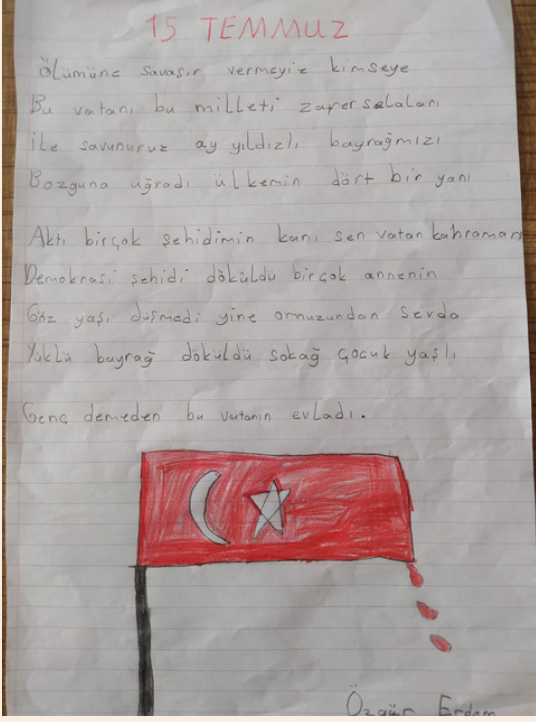 15 TEMMUZ
Ölümüne savaşır vermeyiz kimseye
Bu vatanı bu milleti zafer salaları
ile savunuruz ay yıldızlı bayrağmızı
Bozguna uğradı ülkemin dört bir yanı
Aktı birçok şehidimin kanı sen vatan kahramanı
Demokrasi şehidi döküldü birçok annenin
Göz yaşı düşmedi yine omuzundan sevda
Yüklü bayrağ döküldü sokağ çocuk yaşlı
Genç demeden bu vatanın evladı.
Özgür Erdem